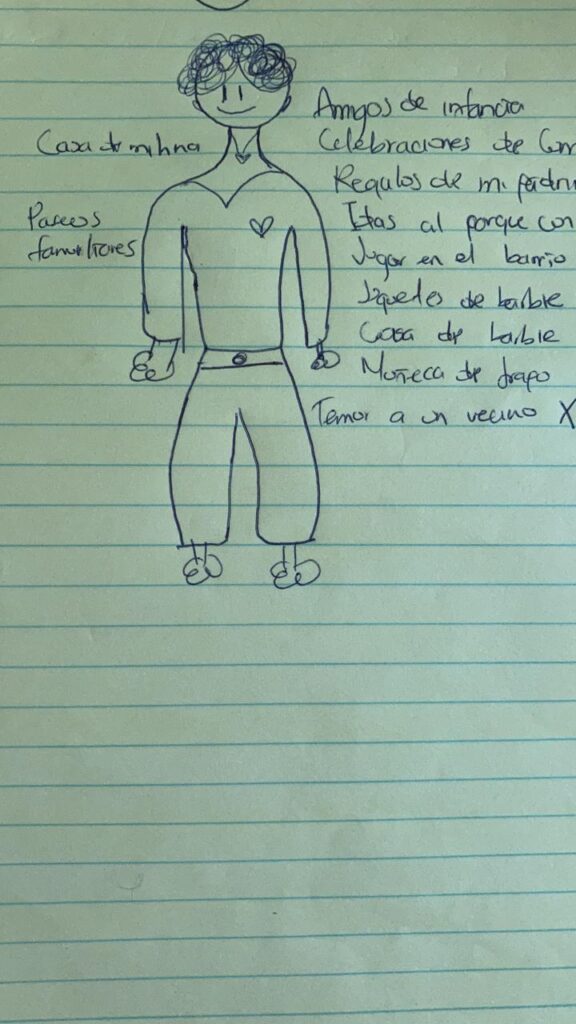 Casa de mi nina
Paseos
familiares
Amigos de infancia
Celebraciones de
Regalos de mi padrin
Idas al parque con
Jugar en el barrio
Juguetes de barbie
Casa de barbie
Muñeca de trapo
Temor a un vecino X